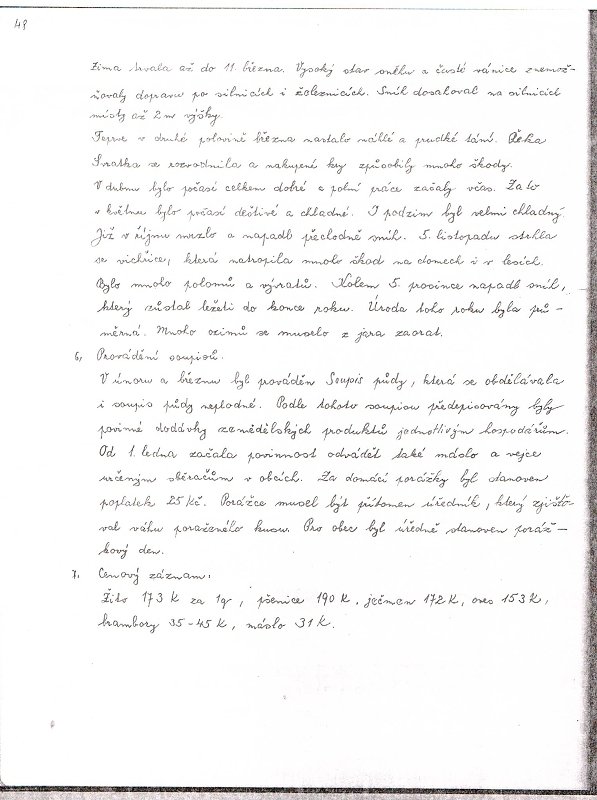 48
Zima trvala až do 11. března. Vysoký stav sněhu a časté vánice znemož-
ňovaly dopravu po silnicích i železnicích. Sníh dosahoval na silnicích
místy až 2 m výšky.
Teprve v druhé polovině března nastalo náhlé a prudké tání. Řeka
Svratka se rozvodnila a nakupené kry způsobily mnoho škody.
V dubnu bylo počasí celkem dobré a polní práce začaly včas. Zato
v květnu bylo počasí deštivé a chladné. I podzim byl velmi chladný.
Již v říjnu mrzlo a napadl přechodně sníh. 5. listopadu strhla
se vichřice, která natropila mnoho škod na domech i v lesích.
Bylo mnoho polomů a vývratů. Kolem 5. prosince napadl sníh,
který zůstal ležeti do konce roku. Úroda toho roku byla prů-
měrná. Mnoho ozimů se muselo z jara zaorat.
6, Provádění soupisů.
V únoru a březnu byl prováděn Soupis půdy, která se obdělávala
i soupis půdy neplodné. Podle tohoto soupisu předepisovány byly
povinné dodávky zemědělských produktů jednotlivým hospodářům.
Od 1. ledna začala povinnost odvádět také máslo a vejce
určeným sběračům v obcích. Za domácí porážky byl stanoven
poplatek 25 Kč. Porážce musel být přítomen úředník, který zjišťo-
val váhu poraženého kusu. Pro obec byl úředně stanoven poráž-
kový den.
7. Cenový záznam.
Žito 173 K za 1q, pšenice 190 K, ječmen 172 K, oves 153 K,
brambory 35-45 K, máslo 31 K.